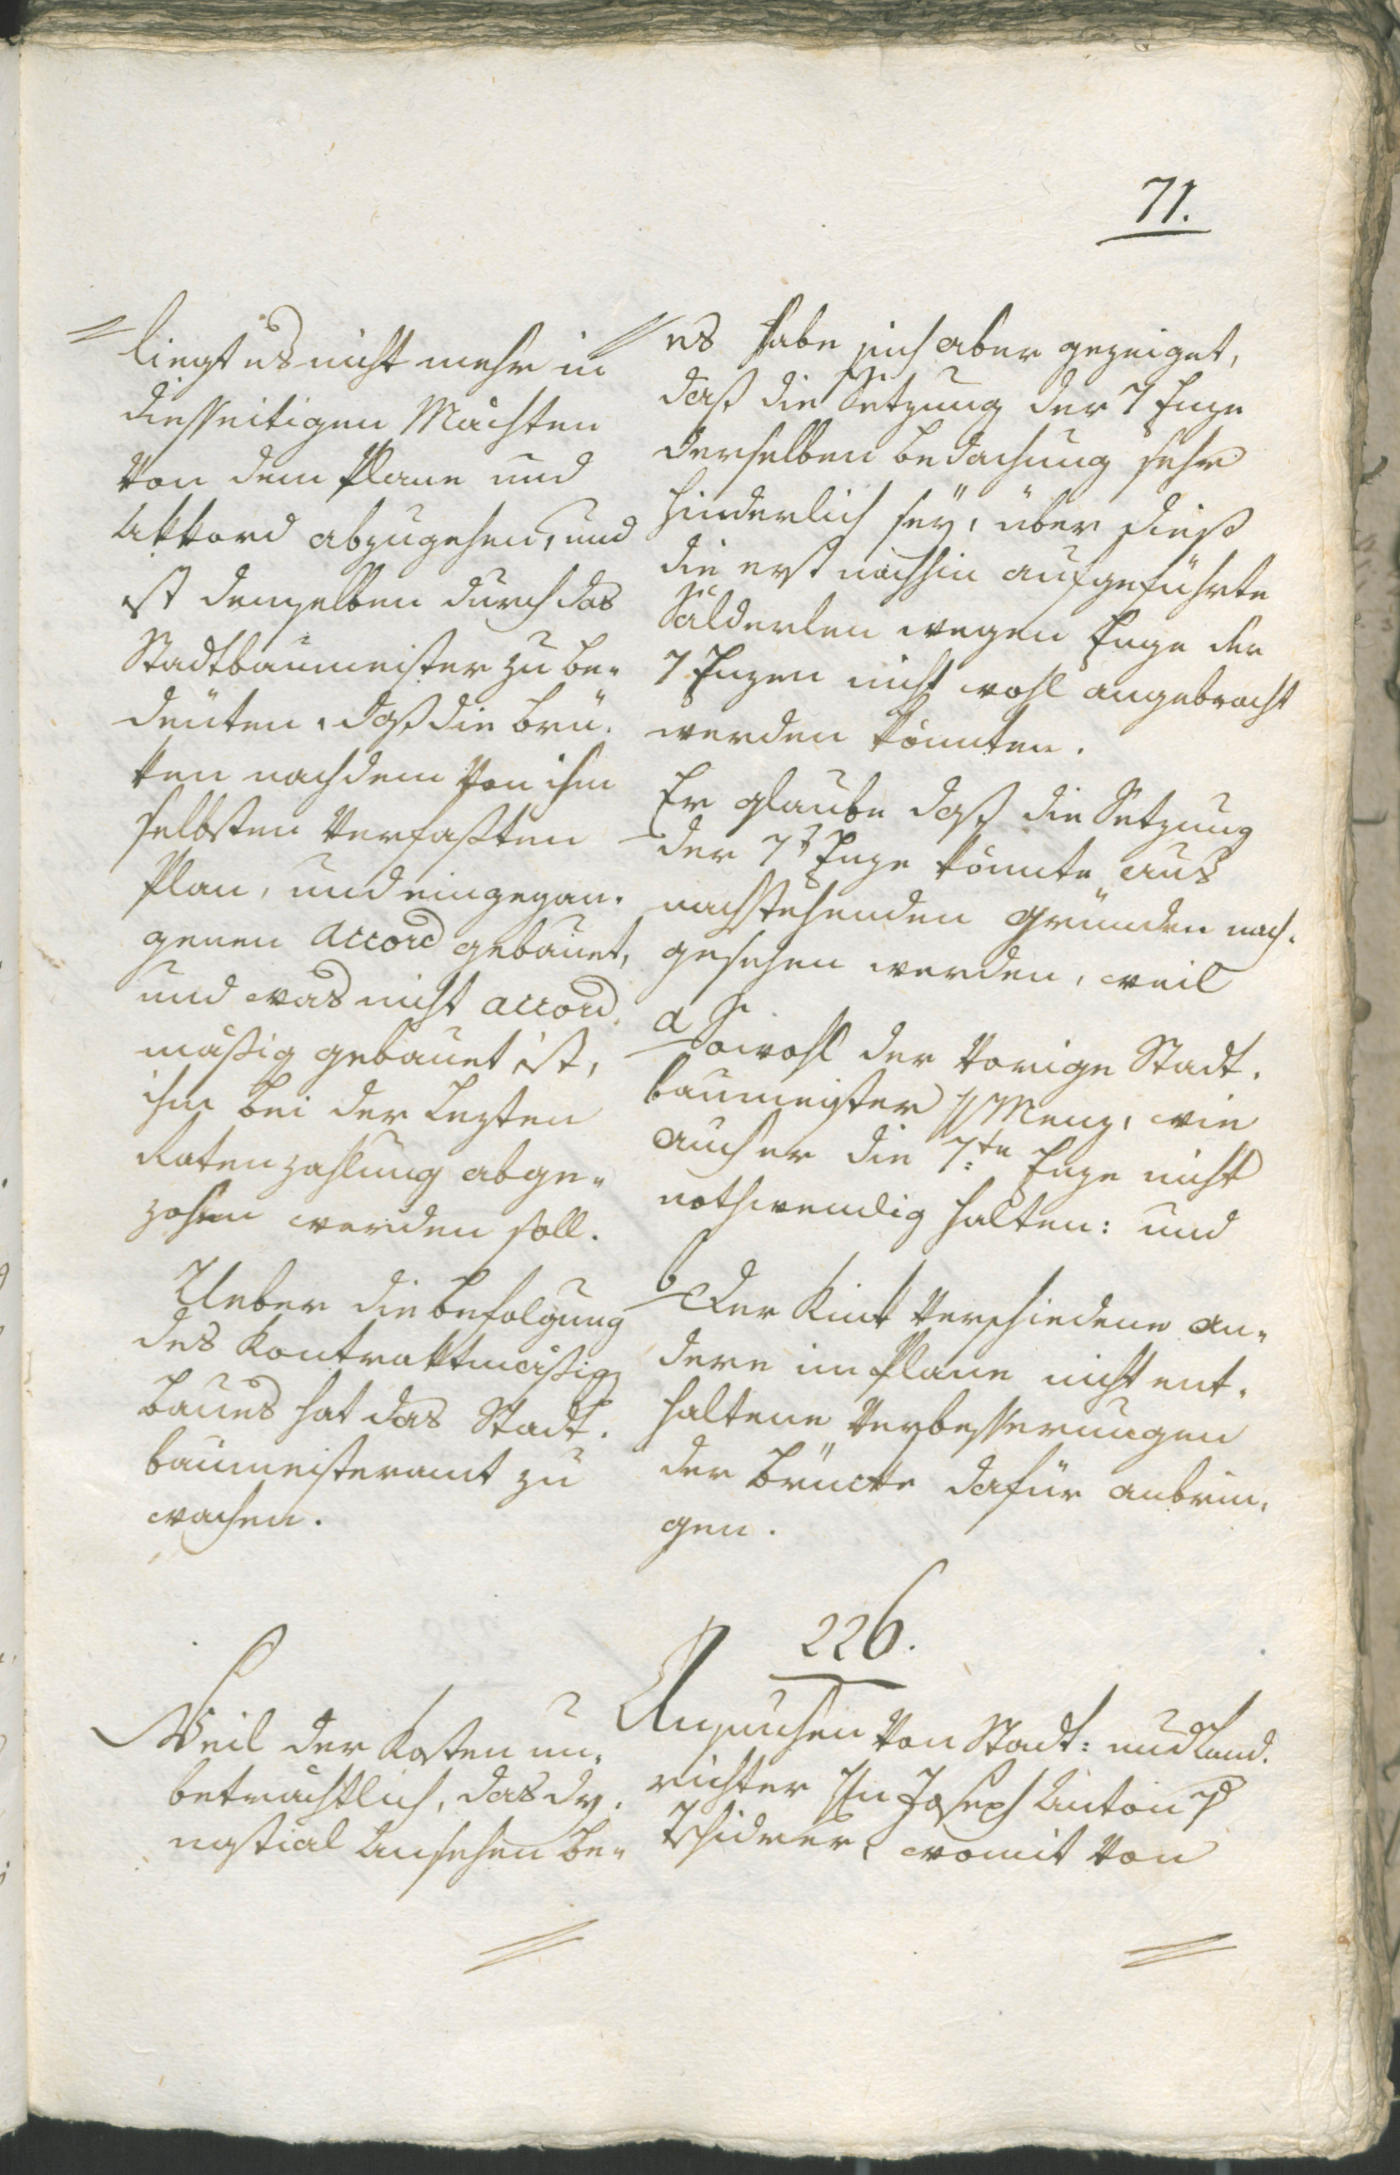 71.
liegt es nicht mehr in
diesseitigen Mächten
von dem Plane und
Akkord abzugehen, und
ist demselben durch das
Stadtbaumeister zu be¬
deuten, daß die Brü¬
ken nach dem von ihm
selbsten verfaßten
Plan, und eingegan¬
genen Accord gebauet,
und was nicht accord¬
mäßig gebauet ist,
ihm bei der lezten
Ratenzahlung abge¬
zohen werden soll.
Ueber die Befolgung
des Kontraktmäßig
Baues hat das Stadt¬
baumeisteramt zu
wachen.
es habe sich aber gezeiget,
daß die Setzung der 7 Enze
derselben Bedachung sehr
hinderlich sey, über dieß
die erst nachhin aufgeführte
wegen Enge der
7 Enzen nicht wohl angebracht
werden könnten.
Er glaube daß die Setzung
der 7t Enze könnte aus
nachstehenden Gründen nach¬
gesehen werden, weil
a Sowohl der vorige Stadt¬
baumeister H Menz, wie
auch er die 7:te Enze nicht
nothwendig halten: und
b Der Kink verschiedene an¬
dere im Plane nicht ent¬
haltene Verbesserungen
der Brücke dafür anbrin¬
gen.
226.
Weil der Kosten un¬
beträchtlich, das dy¬
nastial Ansehen be¬
Ansuchen von Stadt: und Land¬
richter Hn Joseph Anton v
Tschidrer, womit von